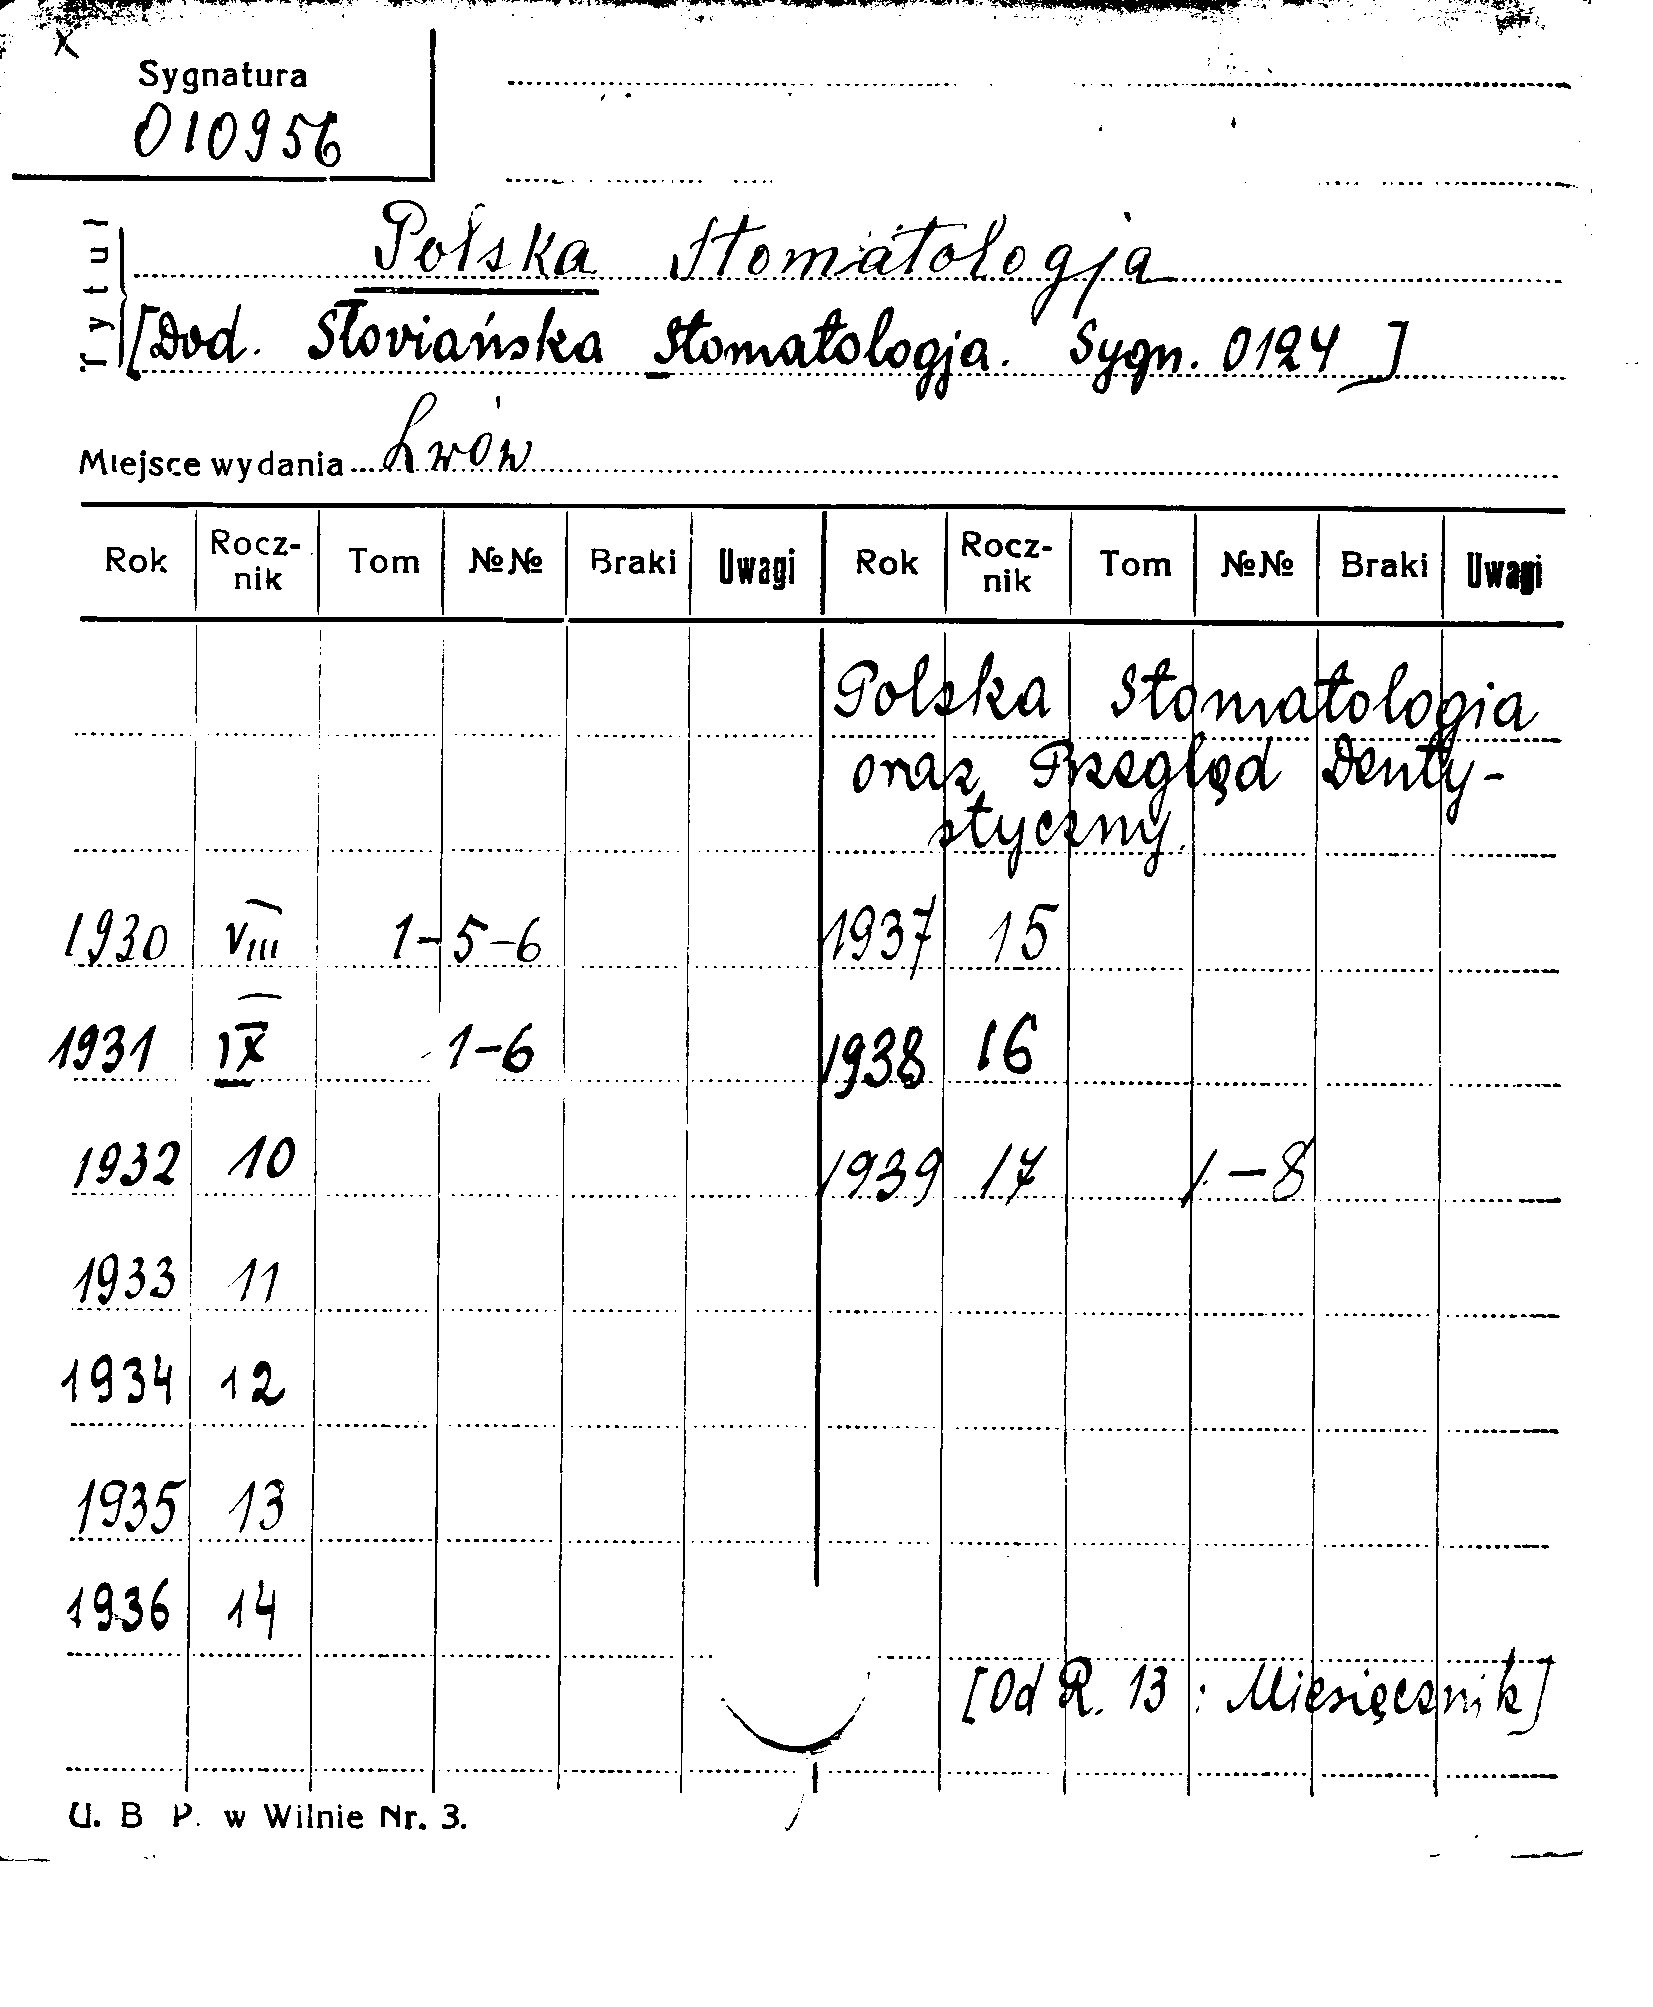 x
Sygnatura
010956
Tytuł
Polska Stomatologja
[Dod. Słoviańska Stomatologja. Sygn. 0124]
Miejsce wydania Lwów
Rok Rocz-nik Tom №№ Braki Uwagi Rok Rocz-nik Tom №№ Braki Uwagi
Polska Stomatologia
oraz Przegląd Denty-
styczny.
1930 VIII 1-5-6 1937 15
1931 IX 1-6 1938 16
1932 10 1939 17 1-8
1933 11
1934 12
1935 13
1936 14
[Od R. 13 : Miesięcznik]
U. B P. w Wilnie Nr. 3.